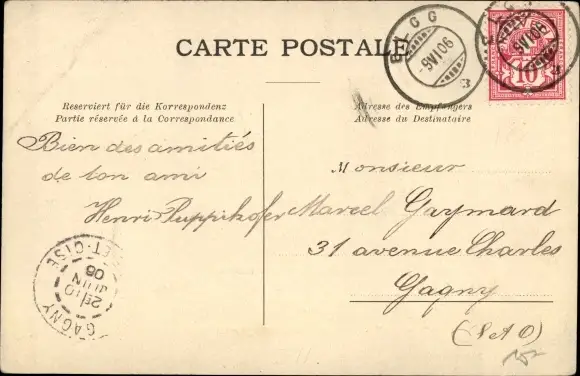 CARTE POSTALE
ELGG
9 VI 06
3
10
Reserviert für die Korrespondenz
Partie réservée à la Correspondance
Adresse des Empfängers
Adresse du Destinataire
Bien des amitiés
de ton ami
Henri Puppikofer
Monsieur
Marcel Gaymard
31 avenue Charles
Gagny
(S & O)
GAGNY
ET-OISE
10
JUIN
06